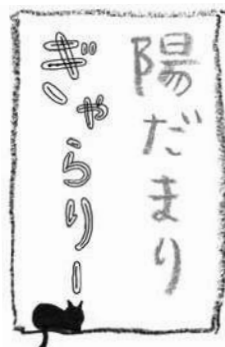 陽だまり
ぎゃらりー